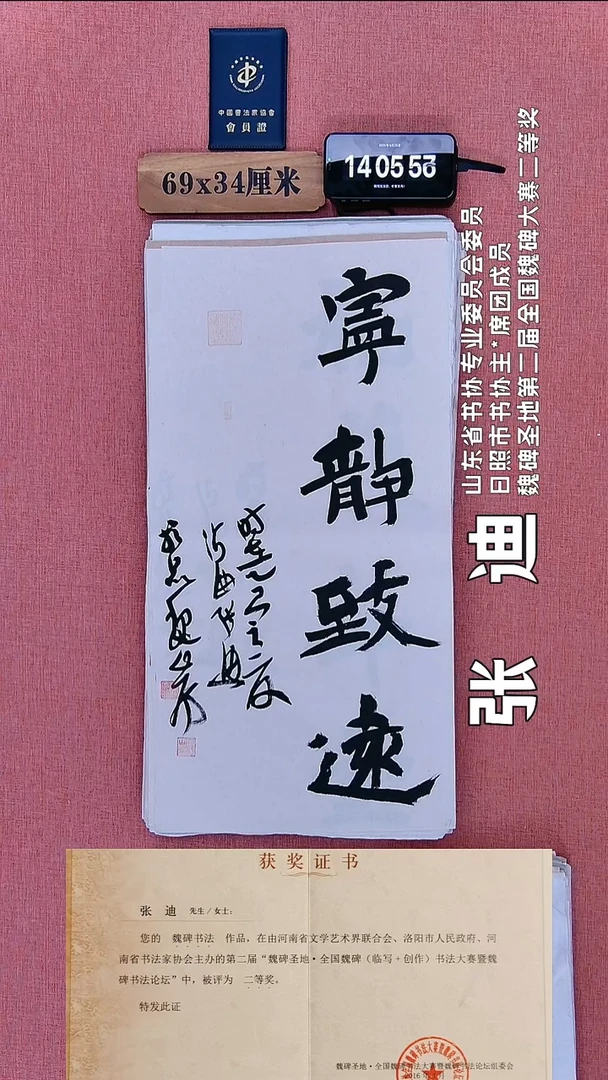 中國書法家協會
會員證
69x34厘米
14 05 56
寧靜致遠
山东省书协专业委员会委员
日照市书协主*席团成员
魏碑圣地第二届全国魏碑大赛二等奖
张 迪
获奖证书
张 迪 先生/女士：
您的 魏碑书法 作品，在由河南省文学艺术界联合会、洛阳市人民政府、河
南省书法家协会主办的第二届“魏碑圣地·全国魏碑（临写+创作）书法大赛暨魏
碑书法论坛”中，被评为 二等奖。
特发此证
魏碑圣地·全国魏碑书法大赛暨魏碑书法论坛组委会